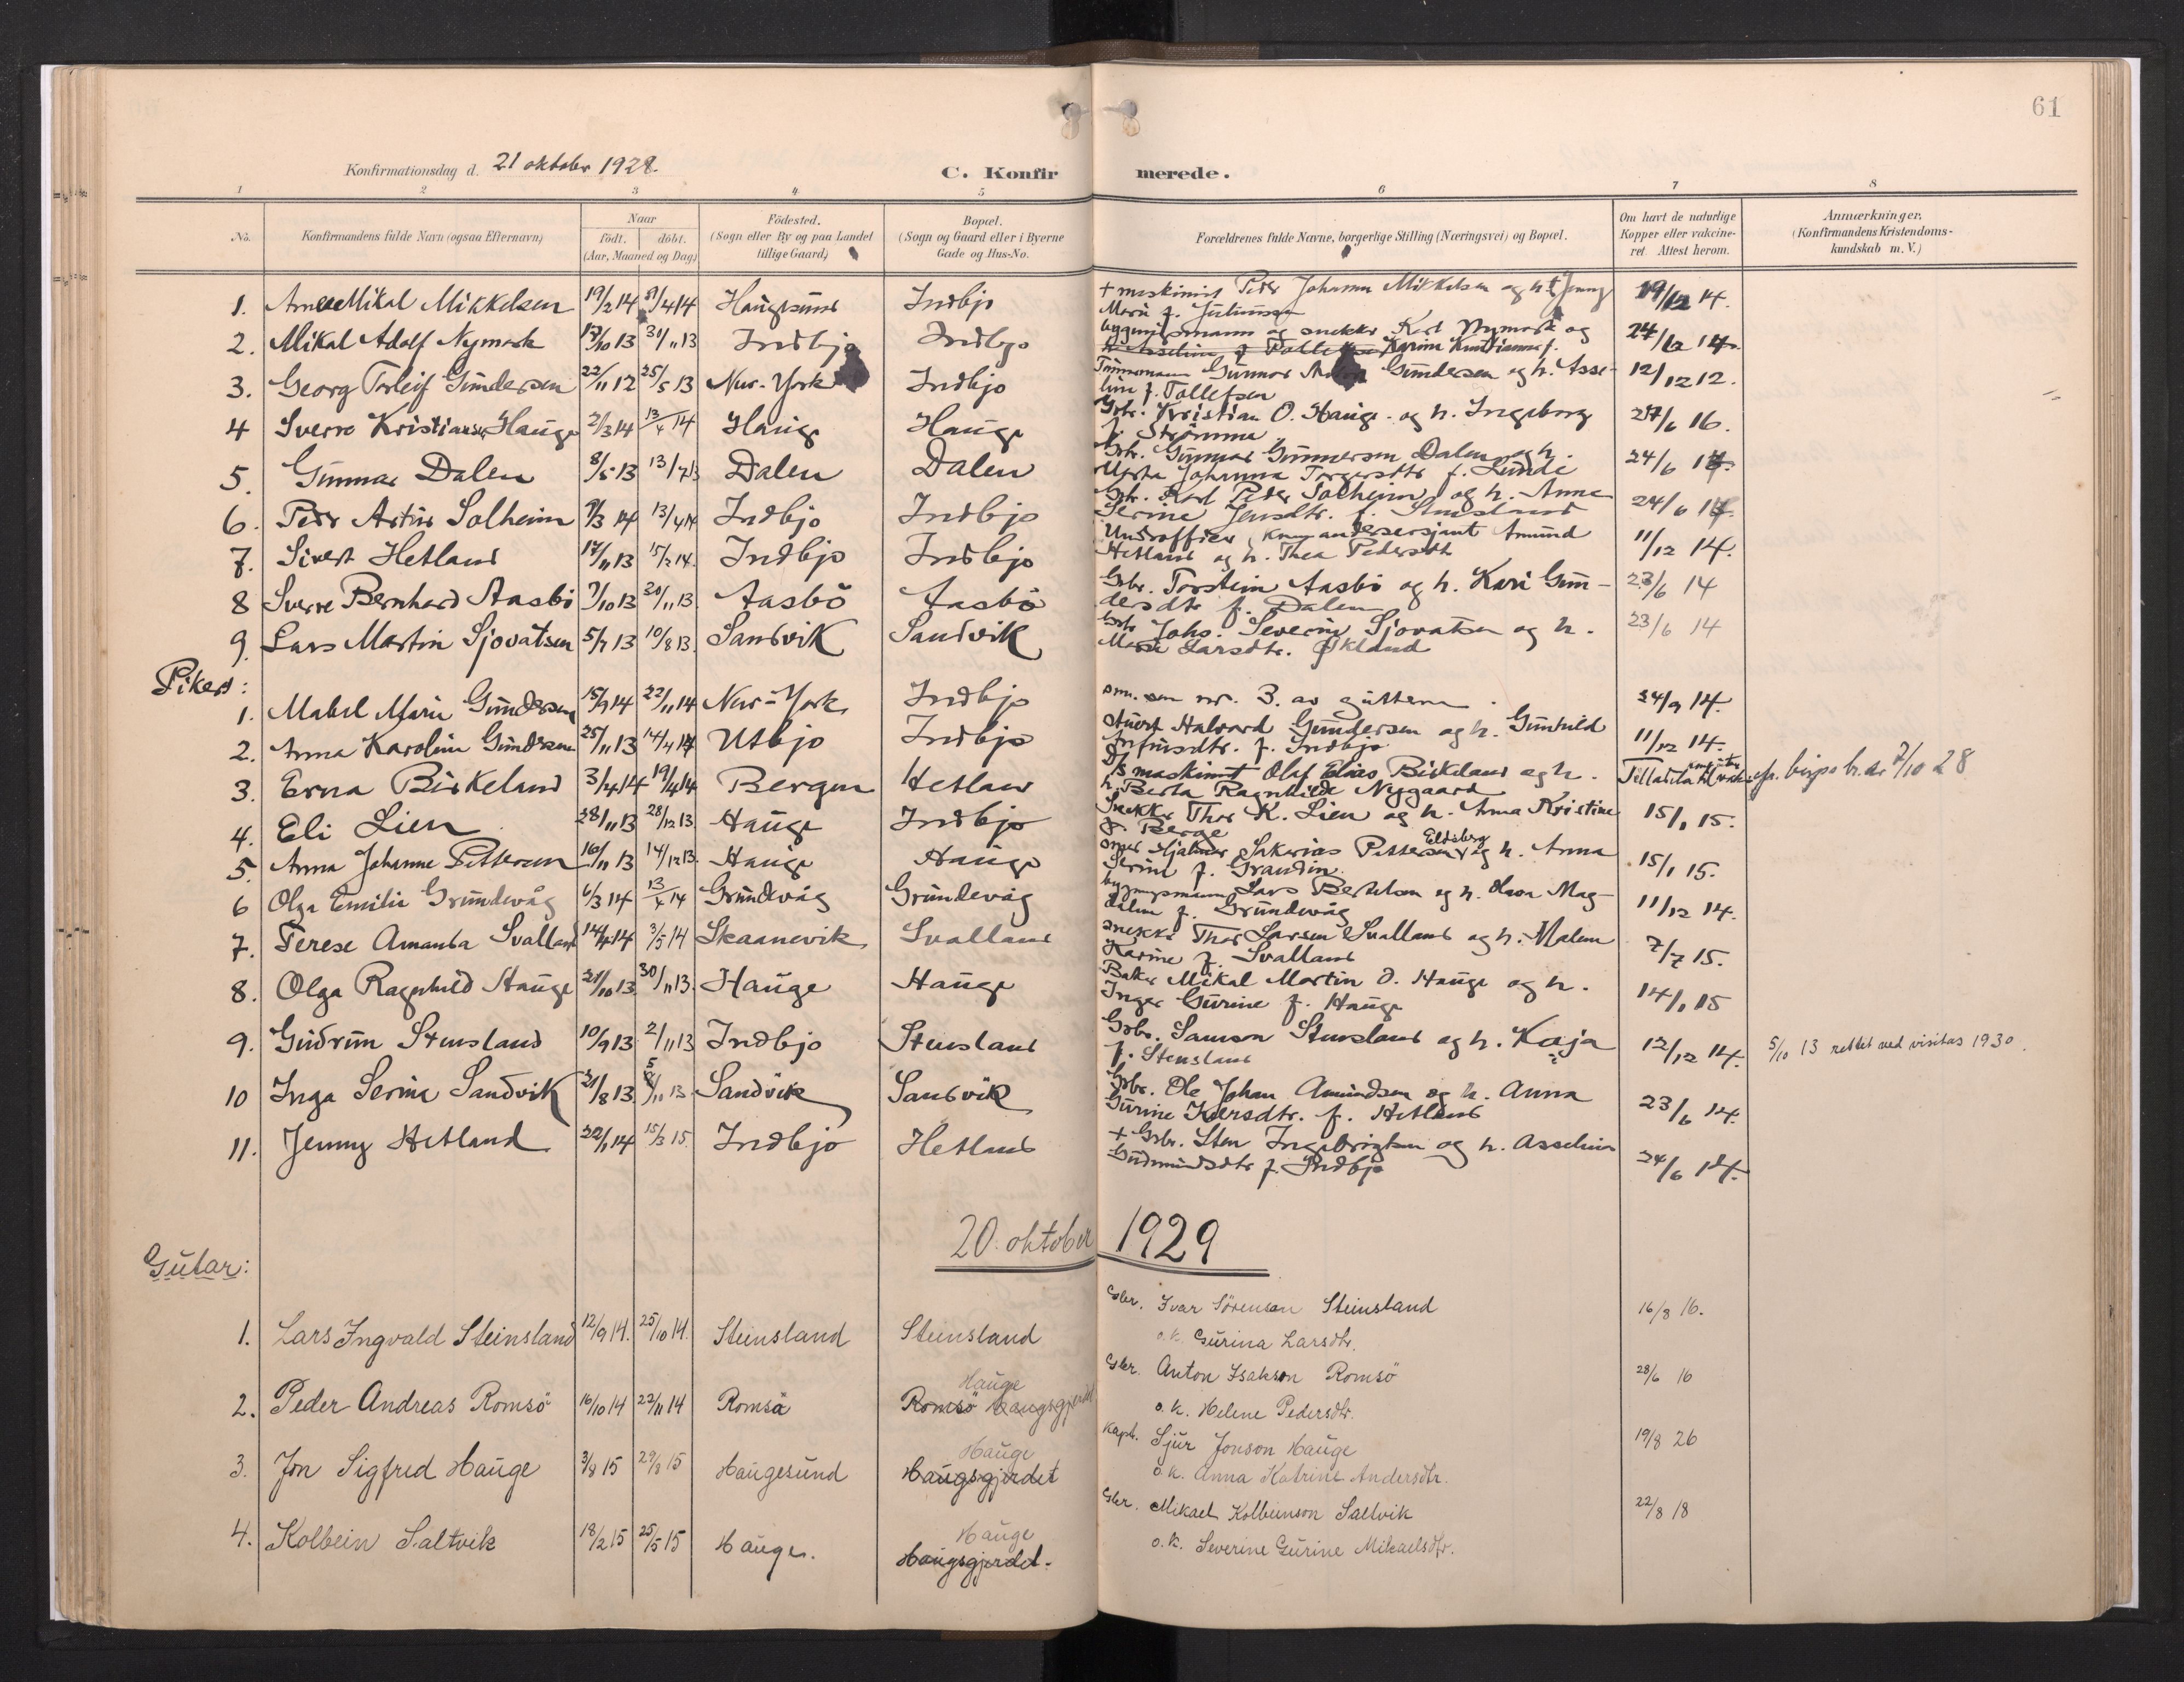 61
Konfirmationsdag d. 21 oktober 1928.
C. Konfirmerede.
1 2 3 4 5 6 7 8
No.
Konfirmandens fulde Navn (ogsaa Efternavn)
Naar
født. døbt.
(Aar, Maaned og Dag)
Födested.
(Sogn eller By og paa Landet
tillige Gaard)
Bopæl.
(Sogn og Gaard eller i Byerne
Gade og Hus-No.
Forældrenes fulde Navne, borgerlige Stilling (Næringsvei) og Bopæl.
Om havt de naturlige
Kopper eller vakcine-
ret Attest herom.
Anmærkninger.
(Konfirmandens Kristendoms-
kundskab m. V.)
1. Mikal Mikkelsen 19/2 14 Haugesund Indbjo + maskinist Peder Johannes Mikkelsen og h. † Jenny 19/12 14.
Marie f.
2. Mikal Adolf Nymark 17/10 13 30/11 13 Indbjo Indbjo bygningsmann og snekker Karl Nymark og 24/12 14.
Karine Kristianne f.
3. Georg Torleif Gundersen 22/11 12 25/5 13 New-York Indbjo Tømmermann Gunnar Gundersen og h. Asse- 12/12 12.
line f. Tollefsen
4 Sverre Kristiansen Hauge 2/3 14 13/4 14 Hauge Hauge Gbr. Kristian O. Hauge og h. Ingeborg 27/6 16.
f. Strømme
5. Gunnar Dalen 8/5 13 13/7 13 Dalen Dalen Gbr. Gunnar Gunnersen Dalen og h. 24/6 14.
Johanna Torgersdtr f. Lunde
6. Peder Artur Solheim 9/3 14 13/4 14 Indbjo Indbjo Gbr. Karl Peder Solheim og h. Anna 24/6 14.
Serine Jensdtr. f. Stensland
7. Sivert Hetland 17/11 13 15/2 14. Indbjo Indbjo Underofficer, kommandersersjant Amund 11/12 14.
Hetland og h. Thea Pedersdtr
8 Sverre Bernhard Aasbö 7/10 13 30/11 13. Aasbö Aasbö Gbr. Torstein Aasbö og h. Kari Gun- 23/6 14
dersdtr f. Dalen
9. Lars Martin Sjovatsen 5/7 13 10/8 13. Sandvik Sandvik Gbr Johs. Severin Sjovatsen og h. 23/6 14
Larsdtr. Økland
Piker:
1. Mabel Marie Gundersen 15/9 14 22/11 14 New-York Indbjo som nr. 3. av guttene. 24/9 14.
2. Anna Karoline Gundersen 25/11 13 14/4 14 Utbjo Indbjo Halvard Gundersen og h. Gunhild 11/12 14.
Anfinsdtr. f. Indbjo
3. Erna Birkeland 3/4 14 19/4 14 Bergen Hetland D/s maskinist Olaf Elias Birkeland og h. Tilladita cfr. bisps br. av 7/10 28
h. Berta Ragnhilde Nygaard
4. Eli Lien 28/11 13 28/12 13. Hauge Indbjo Snekker Thor K. Lien og h. Anna Kristine 15/1 15.
f. Berge
5. Anna Johanne Pettersen 16/11 13 14/12 13. Hauge Hauge smed Hjalmar Sakerias Pettersen Eldsberg og h. Anna 15/1 15.
Serine f. Grandin.
6 Olga Emilie Grundevåg 6/3 14 13/4 14 Grundvåg Grundevåg bygningsmann Lars Bertelsen og h. Mag- 11/12 14.
dalene f. Grundevåg
7. Terese Amanda Svalland 14/4 14 3/5 14 Skaanevik Svalland snekker Thor Larsen Svalland og h. Malene 7/7 15.
Karine f. Svalland
8. Olga Ragnhild Hauge 21/10 13. 30/11 13. Hauge Hauge Baker Mikal Martin O. Hauge og h. 14/1 15
Inger Gurine f. Hauge
9. Gudrun Stensland 10/9 13 2/11 13 Indbjo Stensland Gbr. Samson Stensland og h. Kaja 12/12 14. 5/10 13 rettet ved visitas 1930.
f. Stensland
10 Inga Serine Sandvik 21/8 13. 5/11 13. Sandvik Sandvik Gbr. Ole Johan Amundsen og h. Anna 23/6 14.
Gurine Iversdtr. f. Hetland
11. Jenny Hetland 22/1 14 15/3 15. Indbjo Hetland + Gbr. Sten Ingebrigtsen og h. Asseline 24/6 14.
Gudmundsdtr f. Indbjo
20. oktober 1929
Gutar:
1. Lars Ingvald Steinsland 12/9 14. 25/10 14. Steinsland Steinsland Gbr. Ivar Sörenson Steinsland 16/8 16.
o. k. Gurina Larsdtr.
2. Peder Andreas Romsö 16/10 14 22/11 14 Romsa Romsö Haugsgjerdet Hauge Gbr. Anton Isakson Romsö 28/6 16
o. k. Helene Pedersdtr.
3. Jon Sigfred Hauge 3/8 15 29/8 15 Haugesund Haugsgjerdet Hauge Kapt. Sjur Jonson Hauge 19/8 26
o. k. Anna Katrine Andersdtr.
4. Kolbein Saltvik 18/2 15 25/5 15 Hauge. Haugsgjerdet. Hauge Gbr. Mikael Kolbeinson Saltvik 22/8 18
o. k. Severine Gurine Mikaelsdtr.